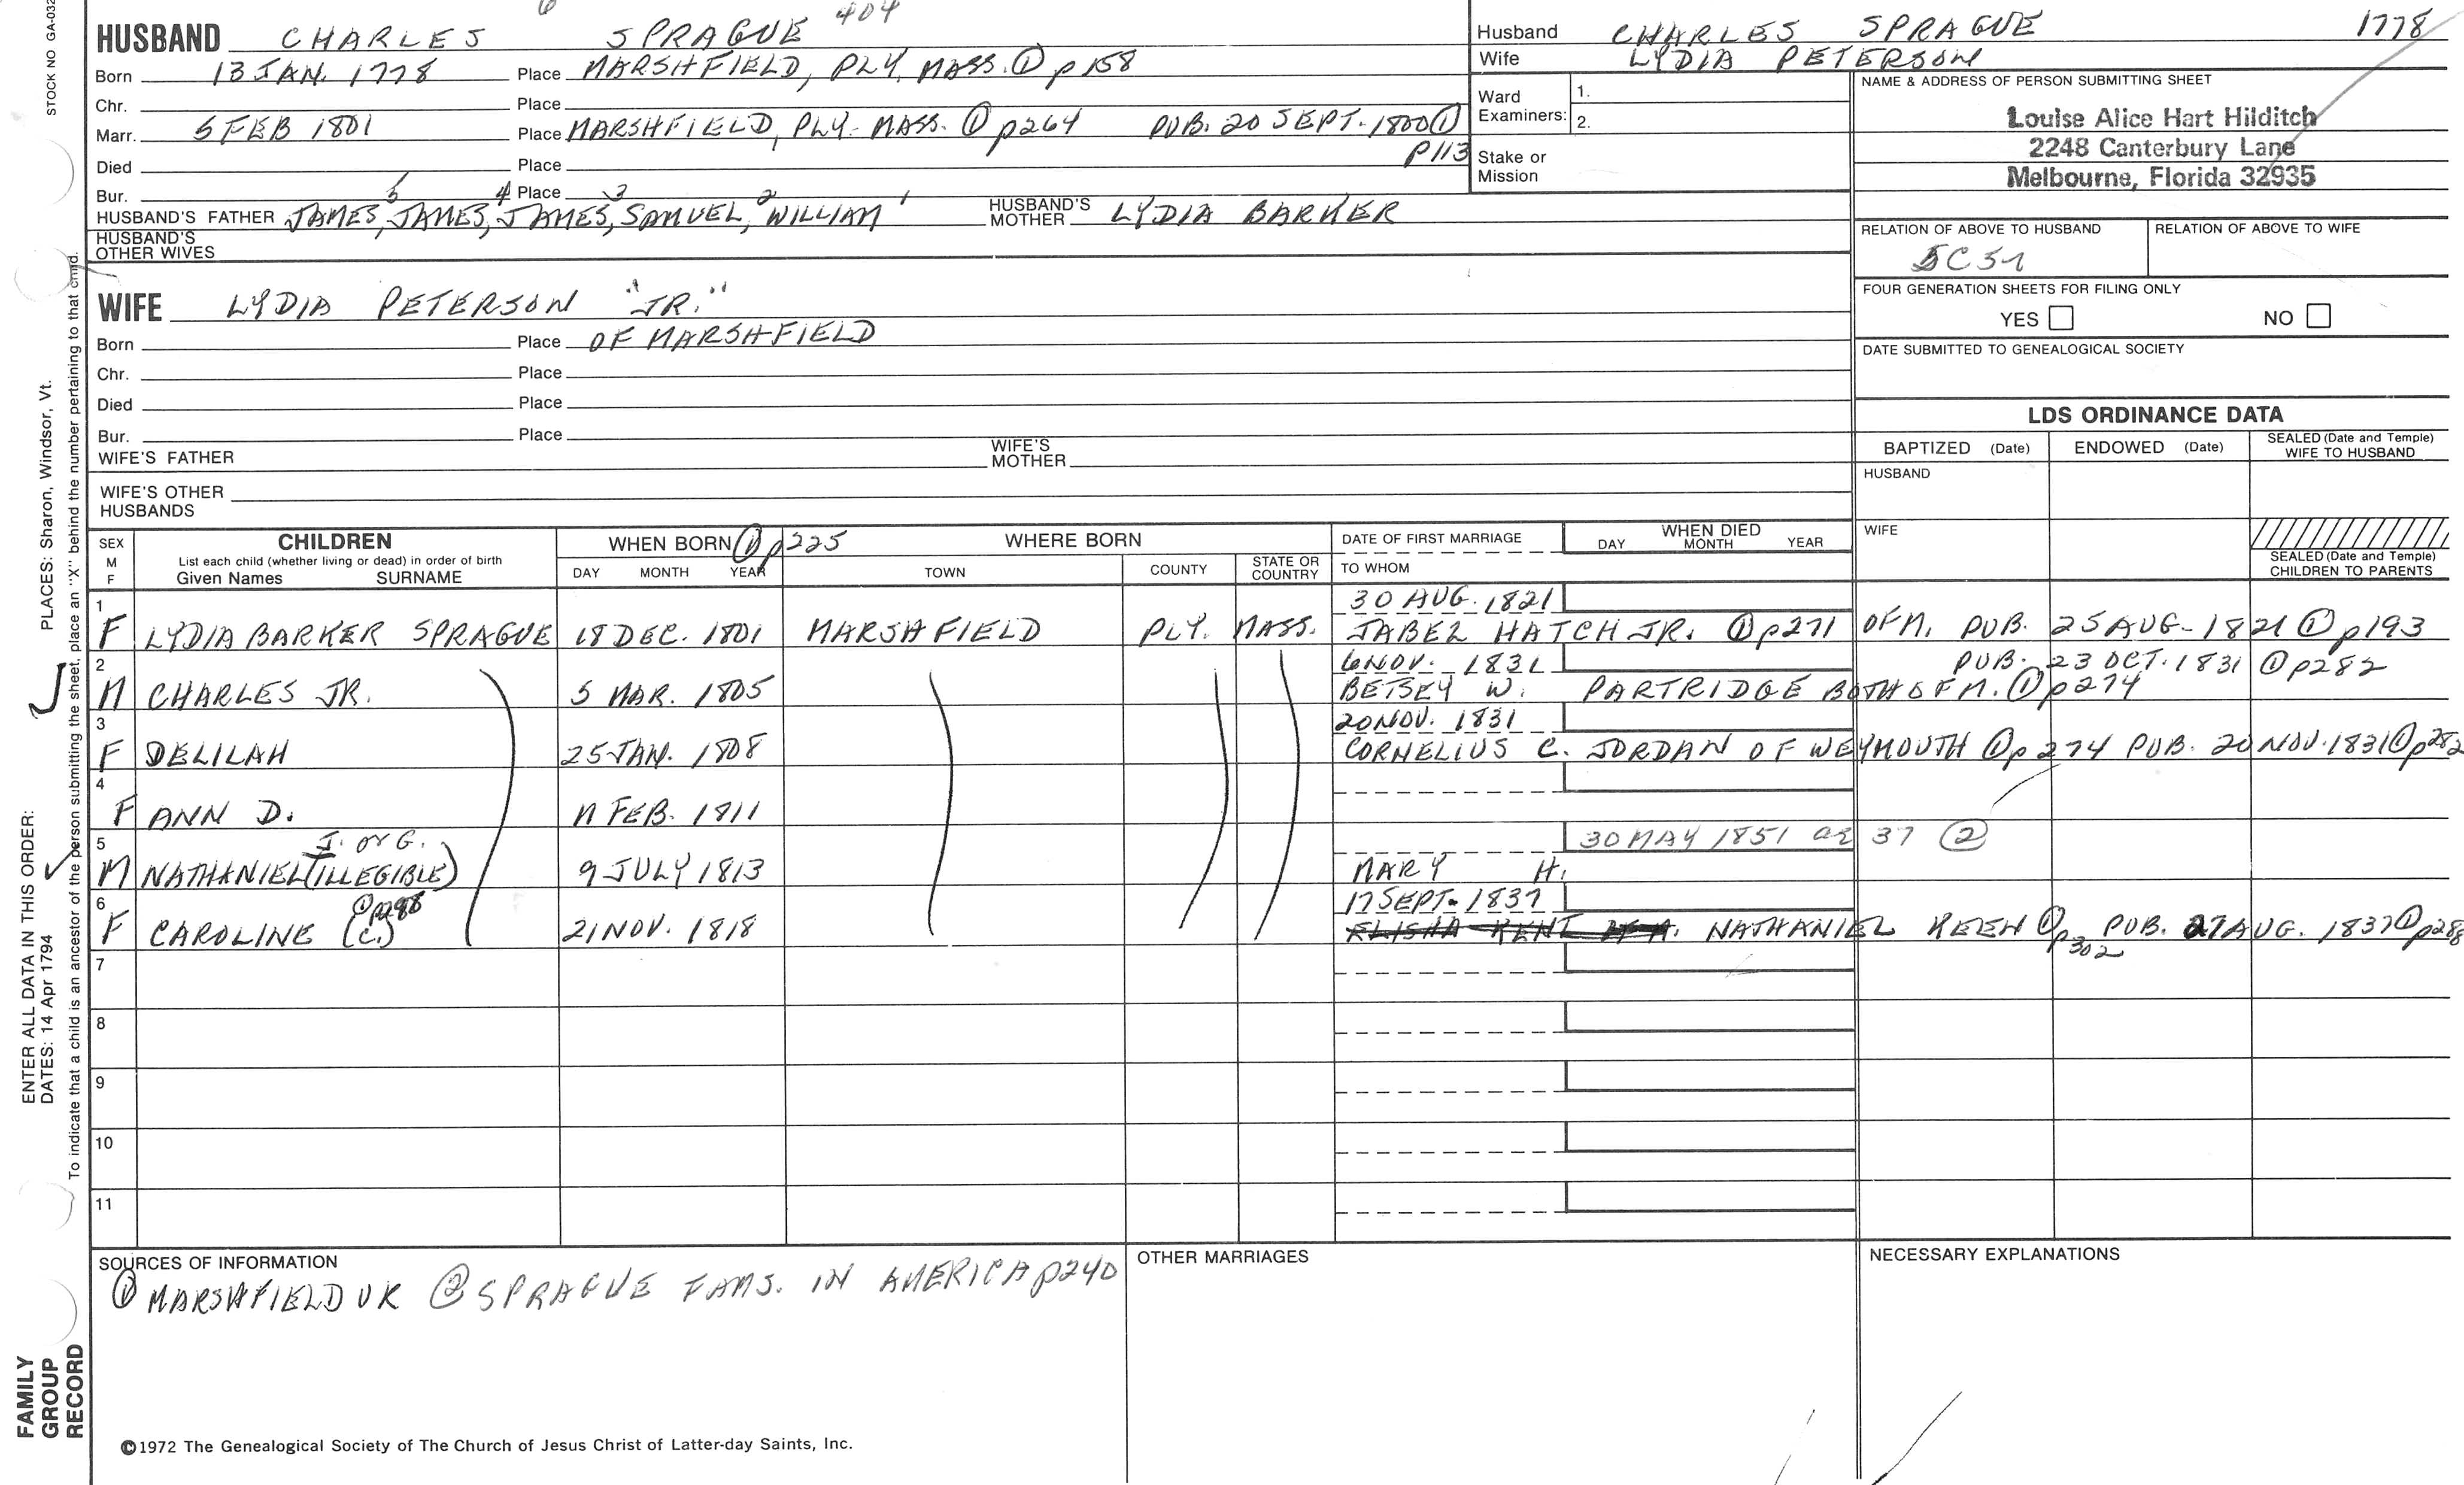 STOCK NO GA-032
6 404
HUSBAND CHARLES SPRAGUE
Born 13 JAN. 1778 Place MARSHFIELD, PLY. MASS. ① p158
Chr. Place
Marr. 5 FEB 1801 Place MARSHFIELD, PLY. MASS. ① p264 PUB. 20 SEPT. 1800 ①
p113
Died Place
Bur. Place
5 4 3 2 1
HUSBAND'S FATHER JAMES, JAMES, JAMES, SAMUEL, WILLIAM HUSBAND'S MOTHER LYDIA BARKER
HUSBAND'S
OTHER WIVES
WIFE LYDIA PETERSON "JR."
Born Place OF MARSHFIELD
Chr. Place
Died Place
Bur. Place
WIFE'S FATHER WIFE'S MOTHER
WIFE'S OTHER
HUSBANDS
Husband CHARLES SPRAGUE 1778
Wife LYDIA PETERSON
Ward
Examiners:
1.
2.
Stake or
Mission
NAME & ADDRESS OF PERSON SUBMITTING SHEET
Louise Alice Hart Hilditch
2248 Canterbury Lane
Melbourne, Florida 32935
RELATION OF ABOVE TO HUSBAND RELATION OF ABOVE TO WIFE
FOUR GENERATION SHEETS FOR FILING ONLY
YES NO
DATE SUBMITTED TO GENEALOGICAL SOCIETY
LDS ORDINANCE DATA
BAPTIZED (Date) ENDOWED (Date) SEALED (Date and Temple)
WIFE TO HUSBAND
HUSBAND
WIFE
SEALED (Date and Temple)
CHILDREN TO PARENTS
SEX
M
F
CHILDREN
List each child (whether living or dead) in order of birth
Given Names SURNAME
WHEN BORN ① p225
DAY MONTH YEAR
WHERE BORN
TOWN COUNTY STATE OR COUNTRY
DATE OF FIRST MARRIAGE
TO WHOM
WHEN DIED
DAY MONTH YEAR
1 30 AUG. 1821
F LYDIA BARKER SPRAGUE 18 DEC. 1801 MARSHFIELD PLY. MASS. JABEZ HATCH JR. ① p271 OF M. PUB. 25 AUG. 1821 ① p193
2 6 NOV. 1831 PUB. 23 OCT. 1831 ① p282
M CHARLES JR. 5 MAR. 1805 BETSEY W. PARTRIDGE BOTH OF M. ① p274
3 20 NOV. 1831
F DELILAH 25 JAN. 1808 CORNELIUS C. JORDAN OF WEYMOUTH ① p274 PUB. 20 NOV. 1831 ① p282
4
F ANN D. 11 FEB. 1811
5 I. or G. 30 MAY 1851 ae 37 ②
M NATHANIEL (ILLEGIBLE) 9 JULY 1813 MARY H.
6 ① p288 17 SEPT. 1837
F CAROLINE (C.) 21 NOV. 1818 ELISHA KENT OF M. NATHANIEL KEEN ① p302 PUB. 27 AUG. 1837 ① p288
7
8
9
10
11
SOURCES OF INFORMATION
① MARSHFIELD VR ② SPRAGUE FAMS. IN AMERICA p240
OTHER MARRIAGES
NECESSARY EXPLANATIONS
©1972 The Genealogical Society of The Church of Jesus Christ of Latter-day Saints, Inc.
FAMILY
GROUP
RECORD
ENTER ALL DATA IN THIS ORDER:
DATES: 14 Apr 1794 PLACES: Sharon, Windsor, Vt.
To indicate that a child is an ancestor of the person submitting the sheet, place an "X" behind the number pertaining to that child.